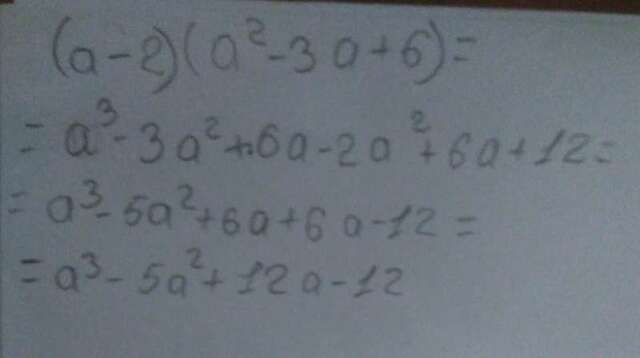 (a-2)(a²-3a+6)=
=a³-3a²+6a-2a²+6a+12=
=a³-5a²+6a+6a-12=
=a³-5a²+12a-12